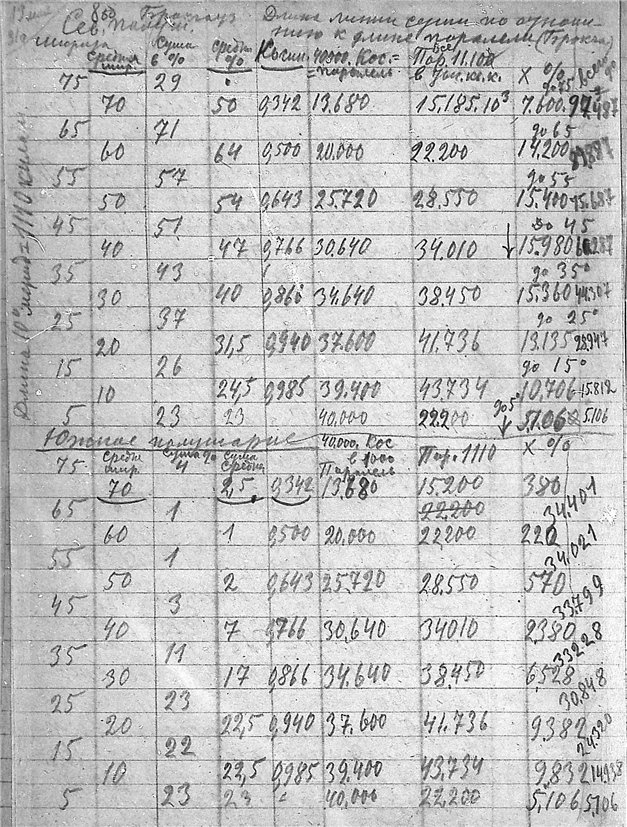 19 мая 850
319 Сев. полуш.
Длина линии суши по отноше-
нию к длине паралели
широта Средн. шир. Сума в % средн % Косин. 40000. Кос.= =паралель Пар. 11.100 все в тыс. кв. к. X % всего до
75 29 до 75
70 50 0,342 13.680 15,185.10³ 7.600
65 71 до 65
60 64 0,500 20.000 22.200 14,200
55 57 до 55
50 54 0,643 25.720 28.550 15.400 75.687
45 51 до 45
40 47 0,766 30.640 34.010 15.980 60.287
35 43 до 35°
30 40 0,866 34.640 38.450 15.360 44.307
25 37 до 25°
20 31,5 0,940 37.600 41.736 13.135 28.947
15 26 до 15°
10 24,5 0,985 39.400 43.734 10.706 15.812
5 23 23 40.000 22.200 до 5° 5.106 5.106
Длина 10° мерид = 1110 килом.
Южное полушарие 40000. Кос в 1000 Паралель Пар. 1110 X %
75 средн шир. сума % 4 сума средн
70 2,5 0,342 13.680 15.200 380
65 1 22,200 34.401
60 1 0,500 20.000 22200 220
55 1 34.021
50 2 0,643 25.720 28.550 570
45 3 33799
40 7 0,766 30.640 34010 2380
35 11 33228
30 17 0,866 34.640 38.450 6,528
25 23 30.848
20 22,5 0,940 37.600 41.736 9382
15 22 24.320
10 22,5 0,985 39.400 43.734 9.832 14938
5 23 23 40.000 22.200 5,106 5,106